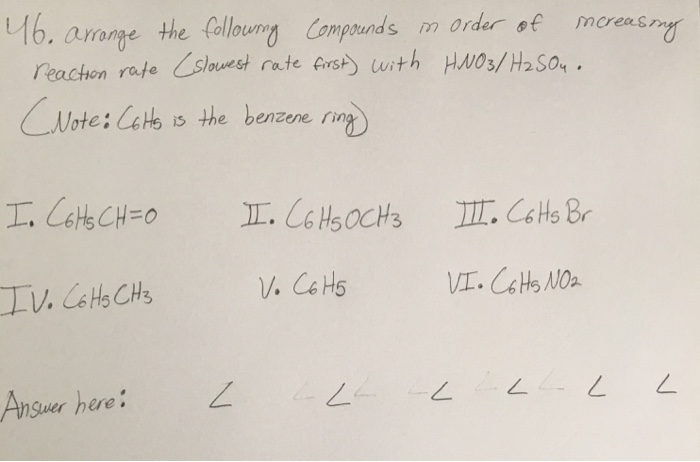 46. arrange the following Compounds in order of increasing
reaction rate (slowest rate first) with HNO3/H2SO4.
(Note: C6H5 is the benzene ring)
I. C6H5CH=O II. C6H5OCH3 III. C6H5Br
IV. C6H5CH3 V. C6H5 VI. C6H5NO2
Answer here: < < < < < <